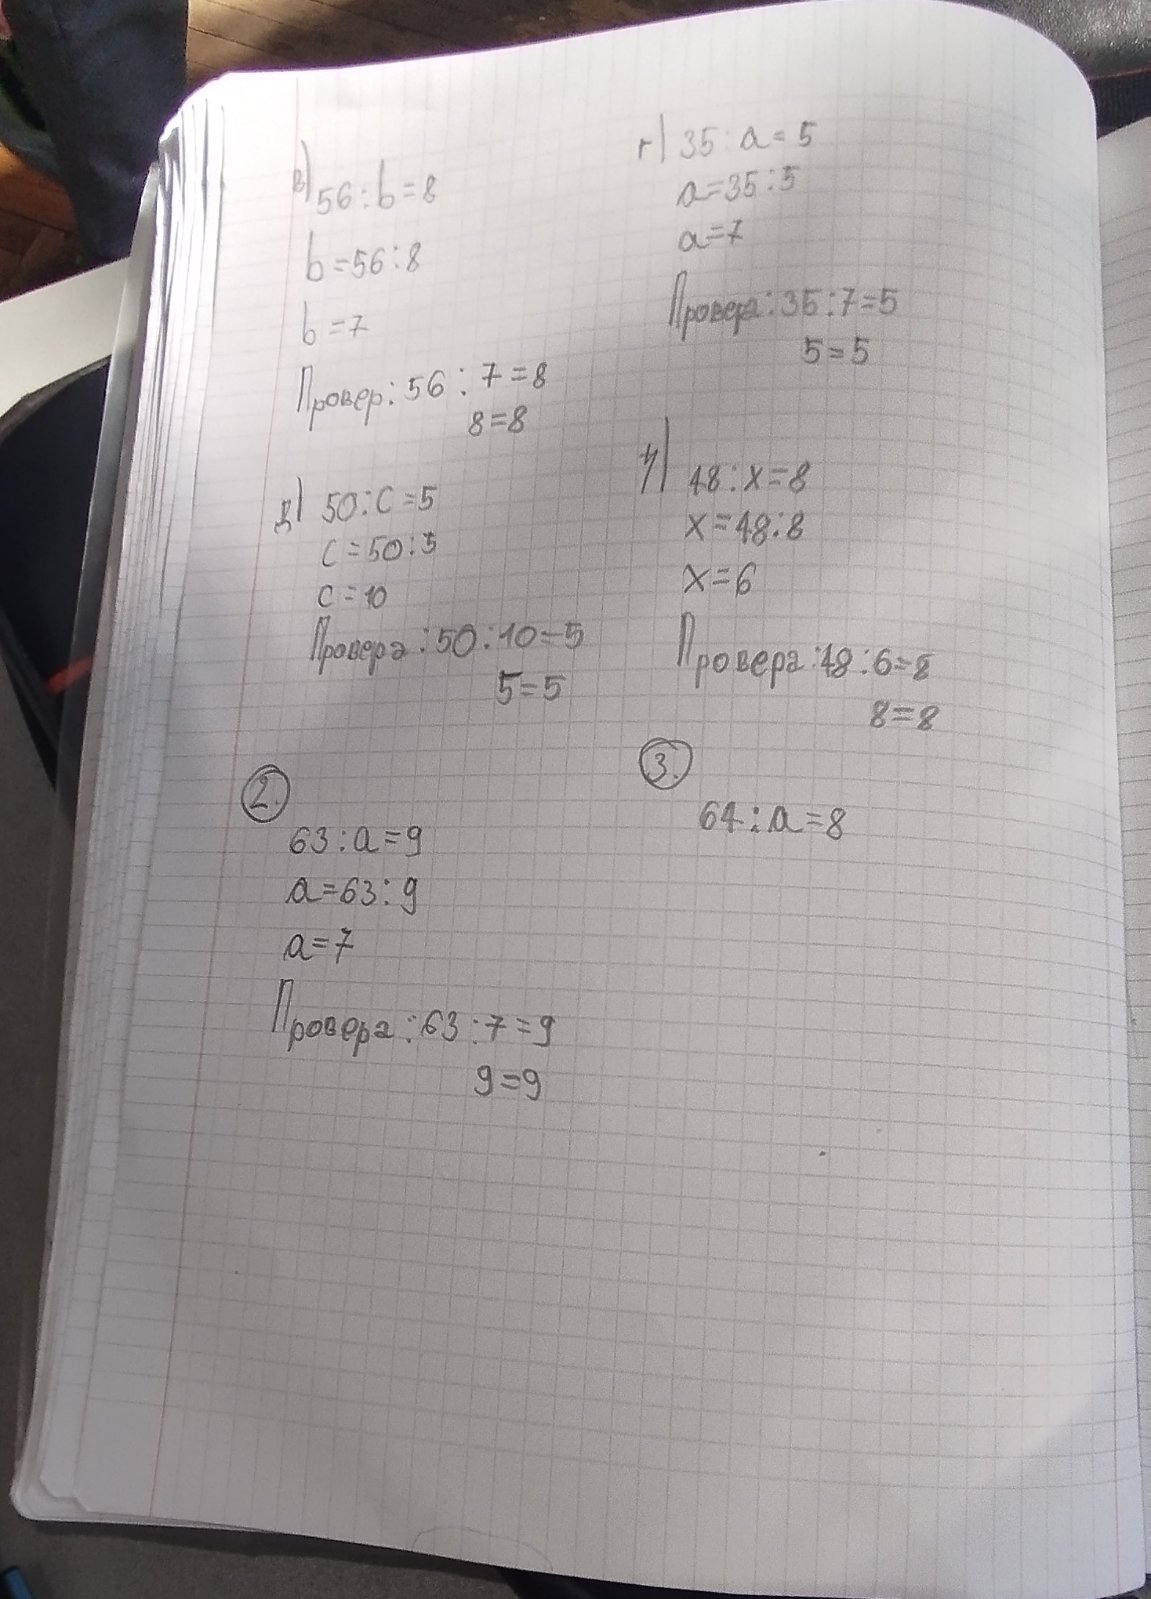 в) 56 : b = 8
b = 56 : 8
b = 7
Провер: 56 : 7 = 8
8 = 8
г) 35 : a = 5
a = 35 : 5
a = 7
Провера: 35 : 7 = 5
5 = 5
д) 50 : c = 5
c = 50 : 5
c = 10
Провера: 50 : 10 = 5
5 = 5
ђ) 48 : x = 8
x = 48 : 8
x = 6
Провера: 48 : 6 = 8
8 = 8
2.
63 : a = 9
a = 63 : 9
a = 7
Провера: 63 : 7 = 9
9 = 9
3.
64 : a = 8